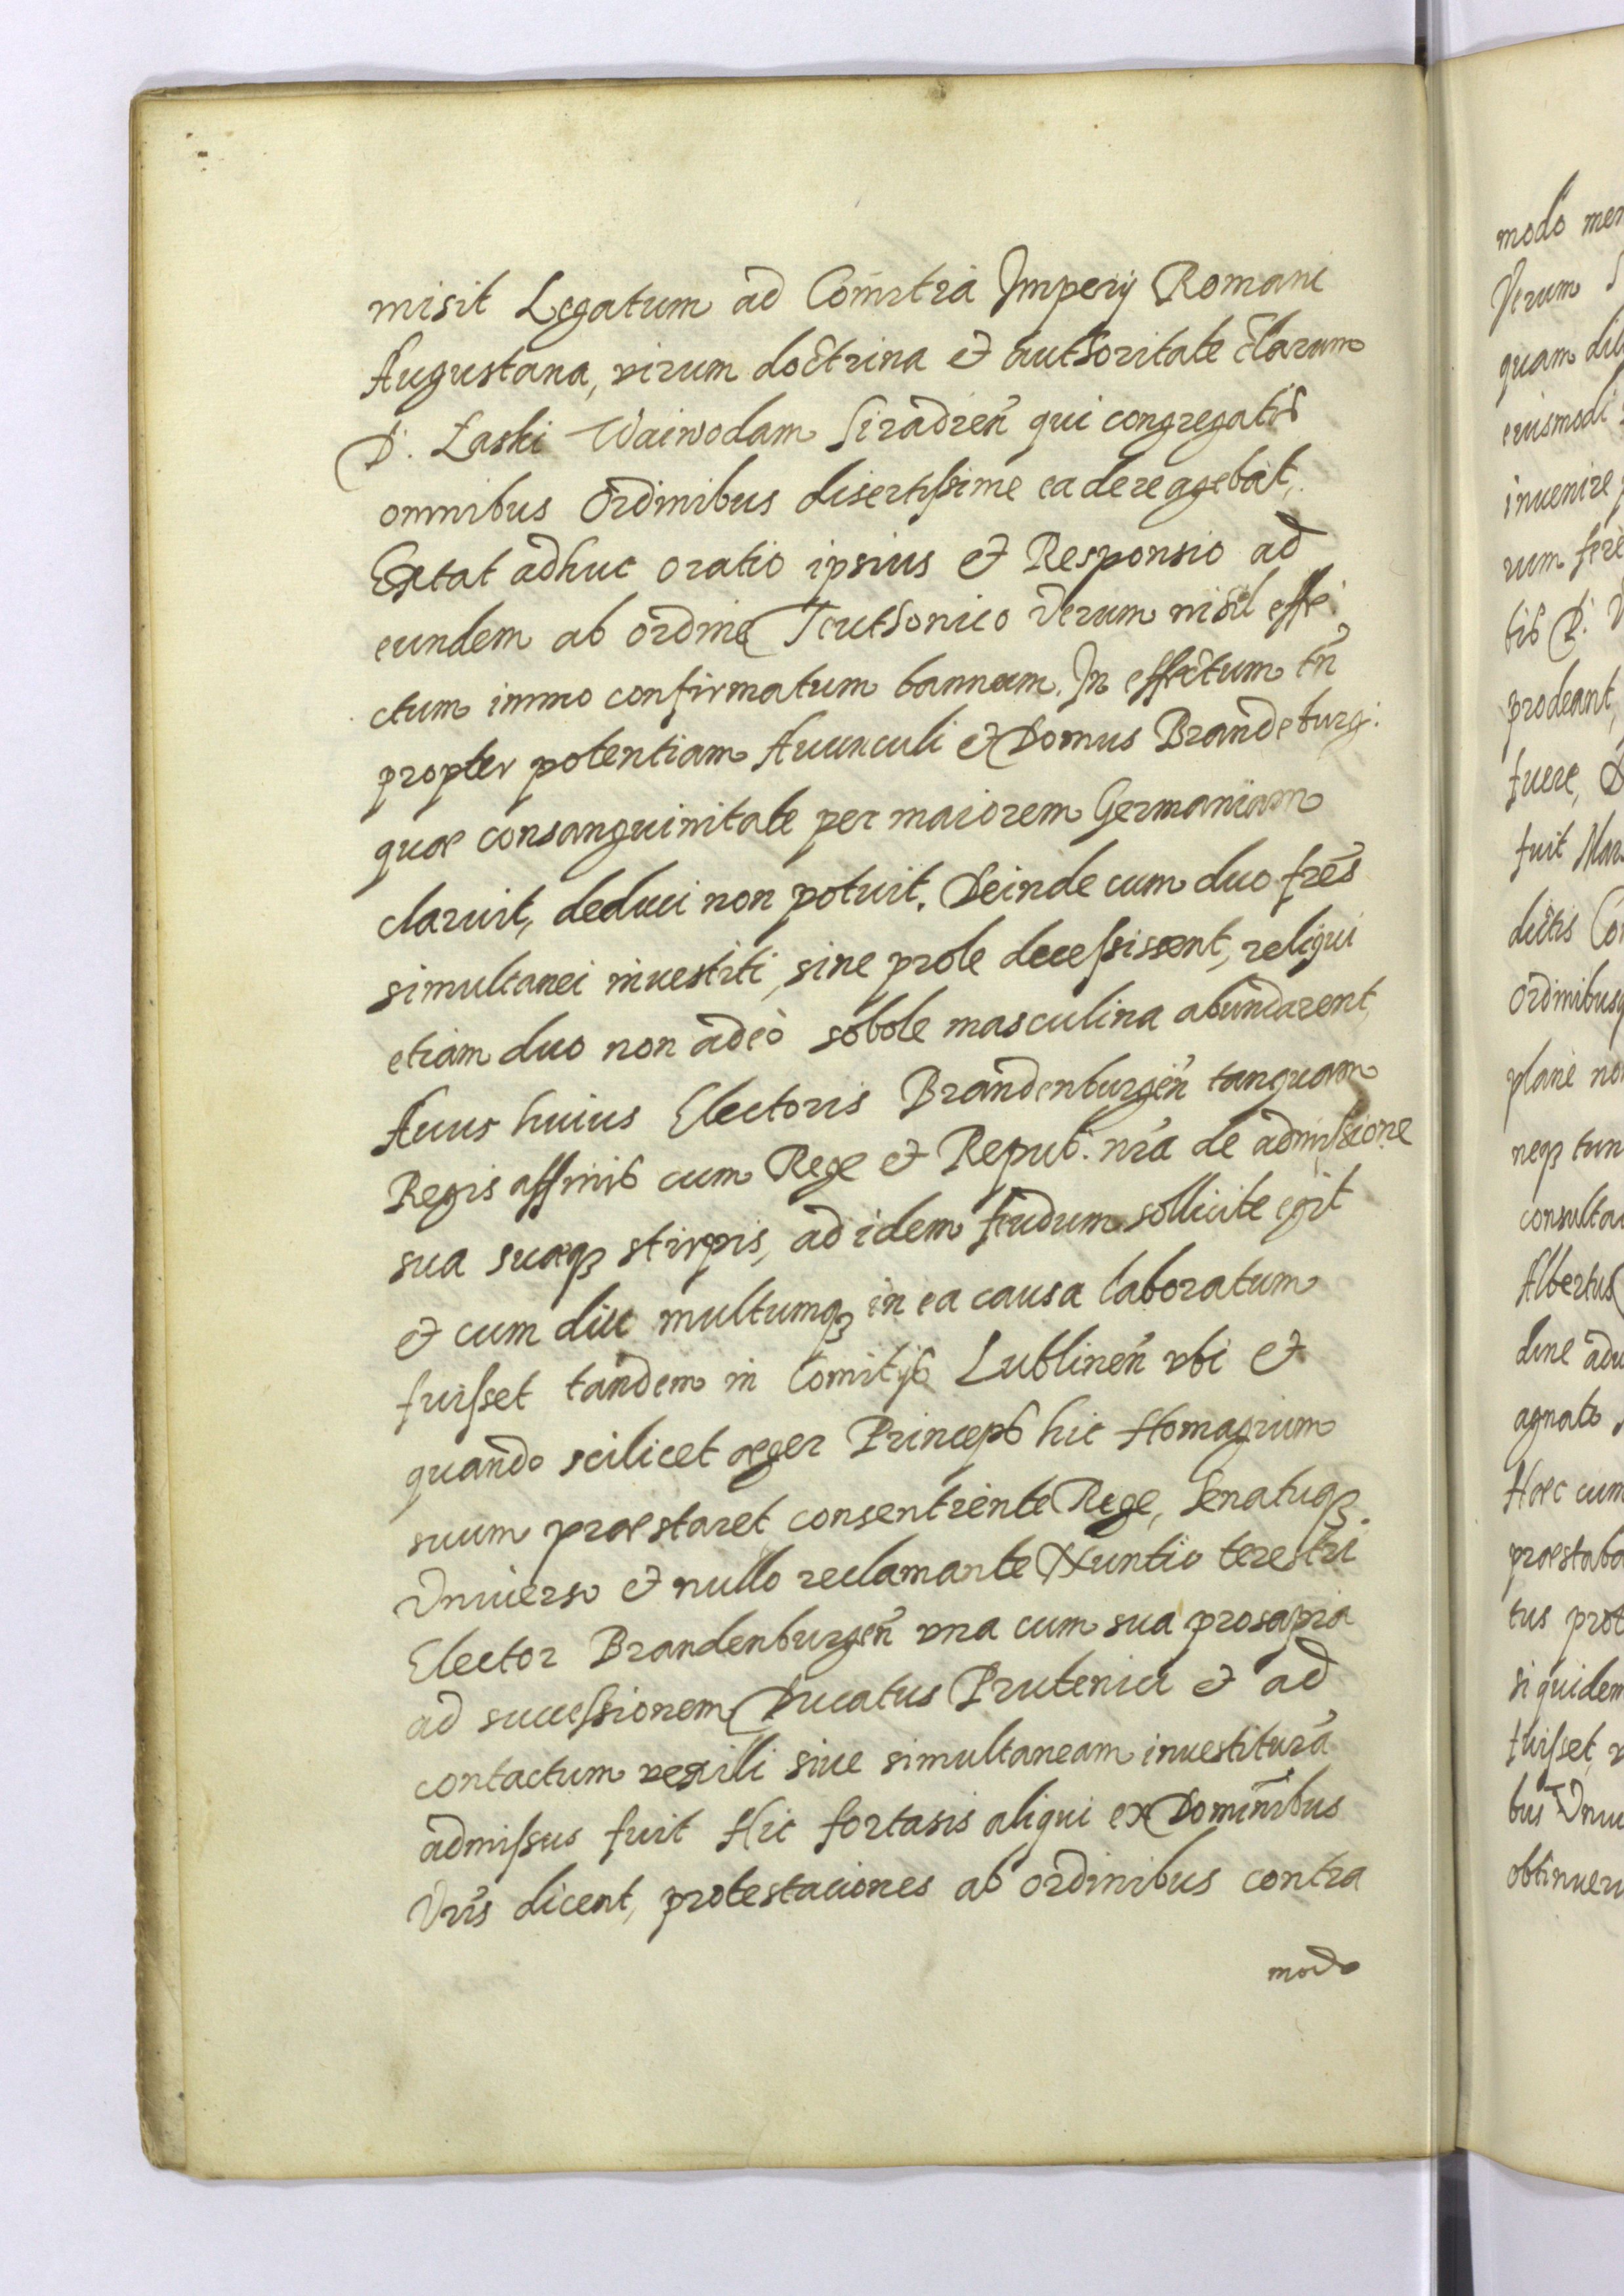 misit Legatum ad Comitia Imperij Romani
Augustana, virum doctrina et authoritate clarum
D. Laski Waiwodam Siradień qui congregatis
omnibus Ordinibus disertissime ea de re agebat,
Extat adhuc oratio ipsius et Responsio ad
eundem ab ordine Teuthonico Verum nihil effe
ctum immo confirmatum bannum. In effectum tñ
propter potentiam Auunculi et Domus Brandeburg.
quae consanguinitate per maiorem Germaniam
claruit, deduci non potuit. Deinde cum duo frēs
simultanei inuestiti, sine prole decessissent, reliqui
etiam duo non adeò sobole masculina abundarent,
Auus huius Electoris Brandenburgeń tanquam
Regis affinis cum Rege et Repub. nrā de admissione
sua suaeqȝ stirpis, ad idem feudum sollicite egit
et cum diu multumqȝ in ea causa laboratum
fuisset tandem in Comitijs Lublineń vbi et
quando scilicet aeger Princeps hic Homagium
suum praestaret consentiente Rege, Senatuqȝ
Vniuerso et nullo reclamante Nuntio terestri
Elector Brandenburgeń vna cum sua prosapia
ad successionem Ducatus Prutenici et ad
contactum vexilli siue simultaneam inuestiturā
admissus fuit Hic fortasis aliqui ex Dominibus
Vrīs dicent, protestaciones ab ordinibus contra
modo
modo
Verum
quam
eiusmodi
inuenire
rum
prodeant,
fuere,
fuit
dictis
Ordinibusq
plane
neqȝ
Albertus
agnato
Haec cum
tus
siquidem
fuisset,
bus